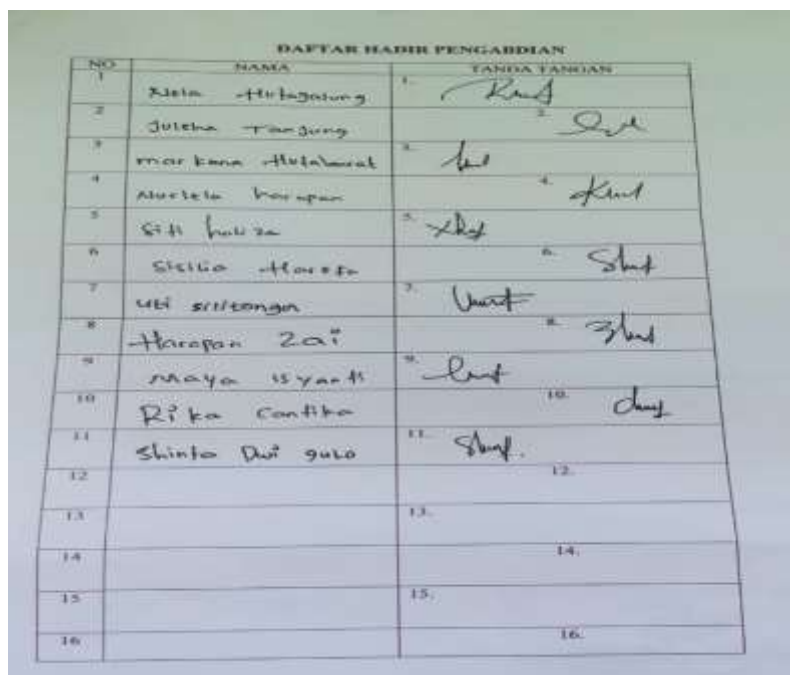 DAFTAR HADIR PENGABDIAN
NO NAMA TANDA TANGAN
1 Nela Hutagalung 1.
2 Juleha Tanjung 2.
3 markana 3.
4 Nurlela harapan 4.
5 Siti 5.
6 Sisilia 6.
7 uti 7.
8 Harapan Zai 8.
9 Maya isyanti 9.
10 Rika Cantika 10.
11 Shinta Dwi gulo 11.
12 12.
13 13.
14 14.
15 15.
16 16.